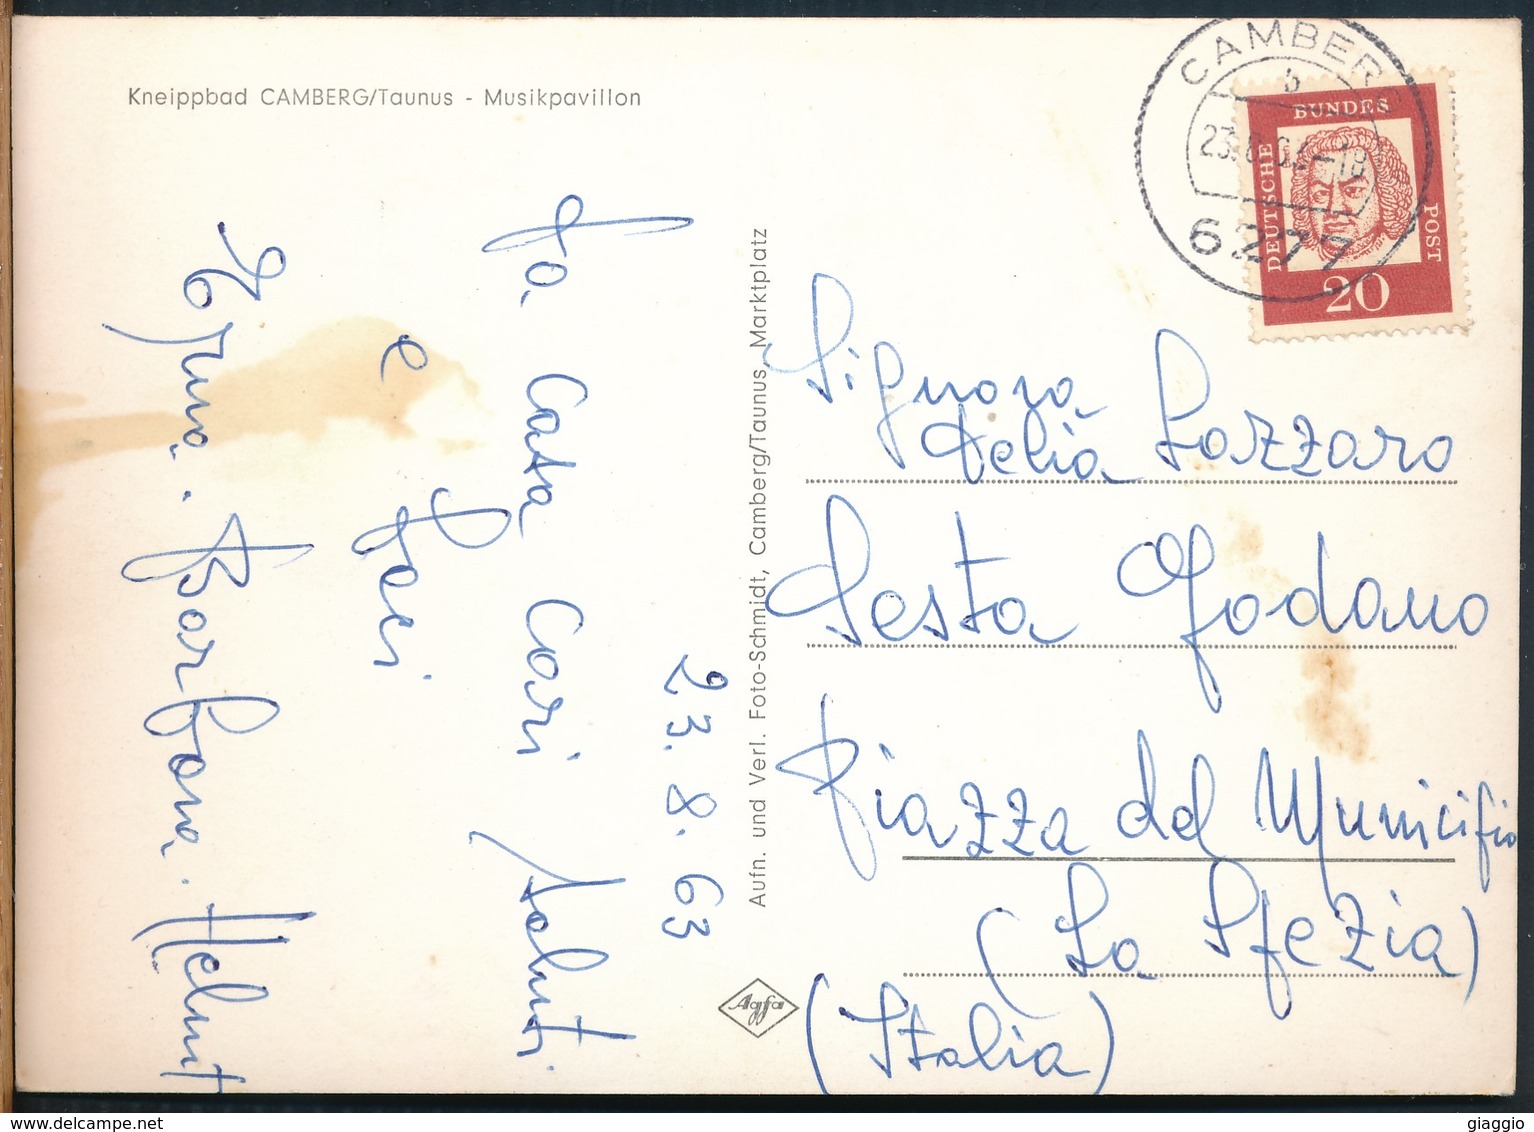 Kneippbad CAMBERG/Taunus - Musikpavillon
CAMBERG
b
23.8.63-18
6277
DEUTSCHE
BUNDES
POST
20
23.8.63
Da Casa Cari Saluti
e Baci
Barbara. Helmut
Aufn. und Verl. Foto-Schmidt, Camberg/Taunus, Marktplatz
Agfa
Signora
Delia Lazzaro
Sesta Godano
Piazza del Municipio
(La Spezia)
(Italia)
www.delcampe.net
giaggio